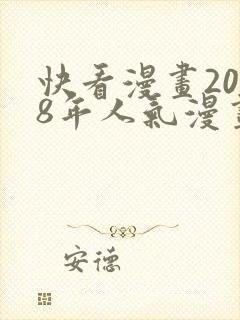 快看漫畫20
8年人氣漫畫
安德